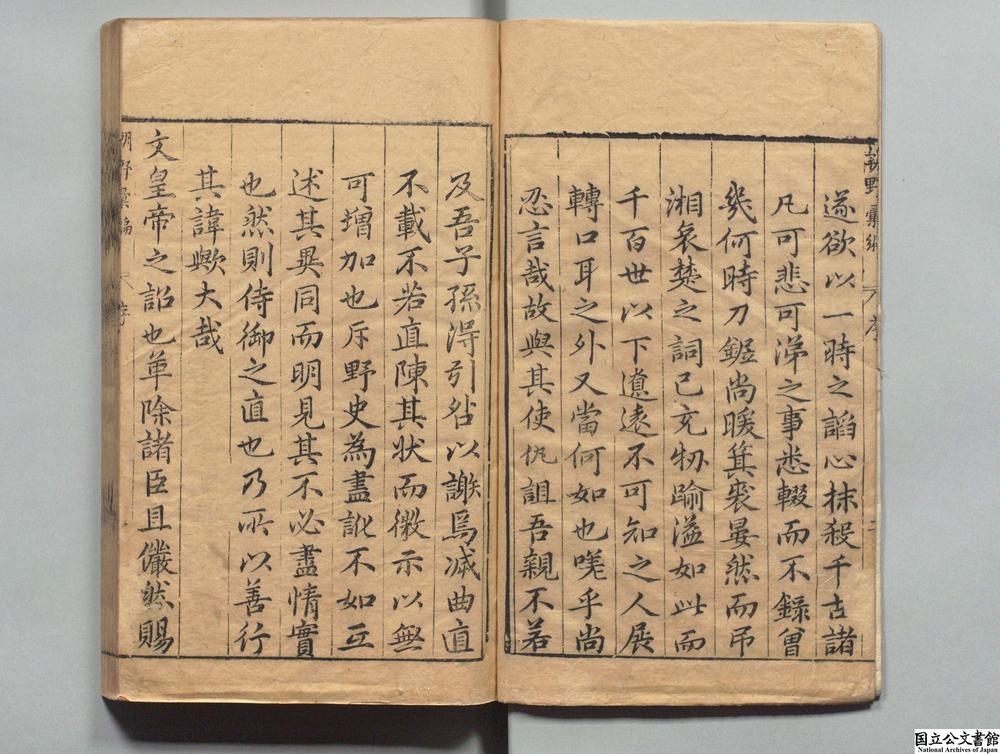 朝野彙編 序
遂欲以一時之謟心抹殺千古諸
凡可悲可涕之事悉輟而不錄曾
幾何時刀鋸尚暖箕裘晏然而吊
湘哀楚之詞已充牣踰溢如此而
千百世以下遼遠不可知之人展
轉口耳之外又當何如也嘆乎尚
忍言哉故與其使仇詛吾親不若
及吾子孫得引咎以謝焉减曲直
不載不若直陳其状而徵示以無
可增加也斥野史為盡訛不如互
述其異同而明見其不必盡情實
也然則侍御之直也乃所以善行
其諱歟大哉
文皇帝之詔也革除諸臣且儼然賜
朝野彙編 序
国立公文書館
National Archives of Japan